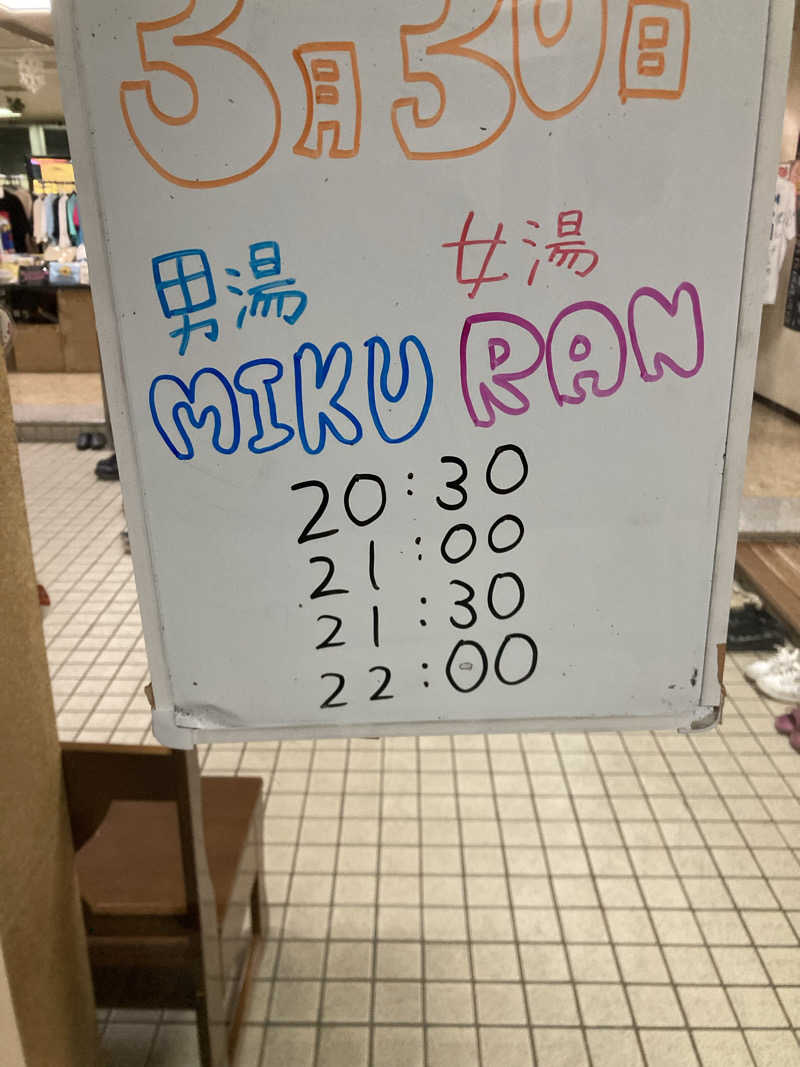 3月30日
男湯 女湯
MIKU RAN
20:30
21:00
21:30
22:00